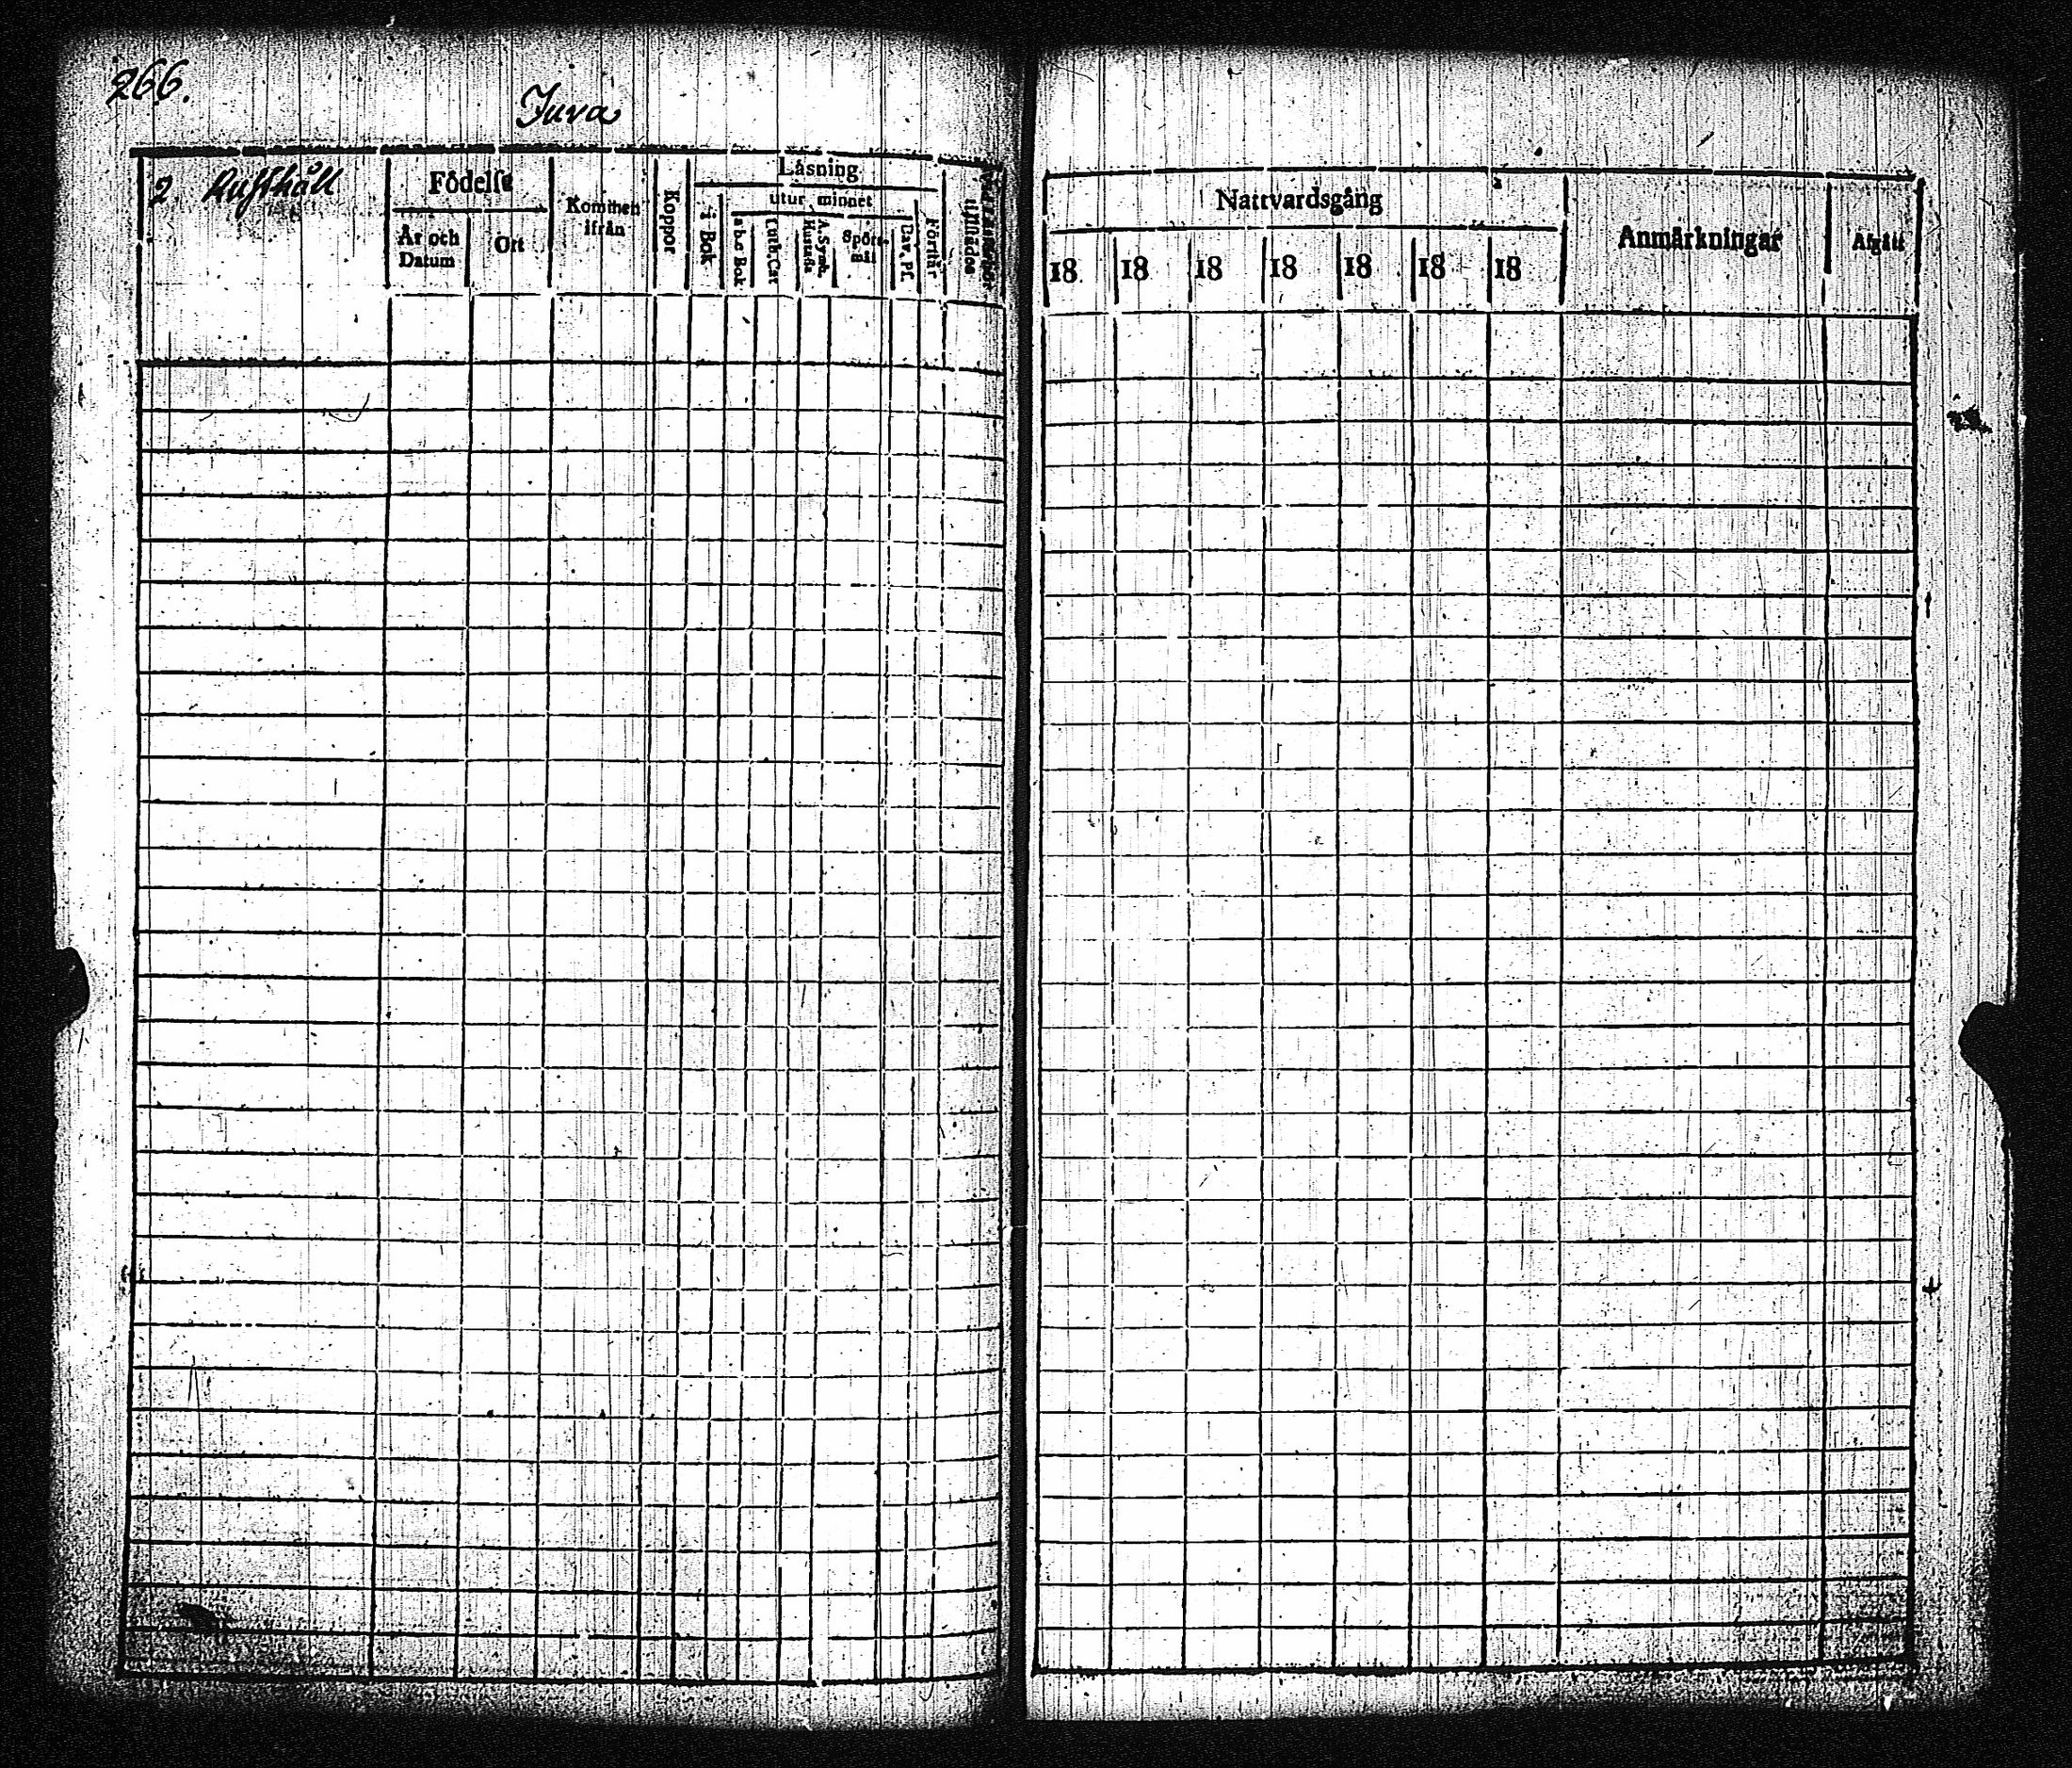 266.
Juva
2. Rusthåll
Födelse
År och
Datum
Ort
Kommen
ifrån
Koppor
Läsning
i Bok
utur minnet
a b c Bok
Luth. Cat
A. Symb.
Hustafla
Spörs-
mål
Dav. Ps.
Förstår
Nattvardsgång
18 18 18 18 18 18 18
Anmärkningar
Afgått